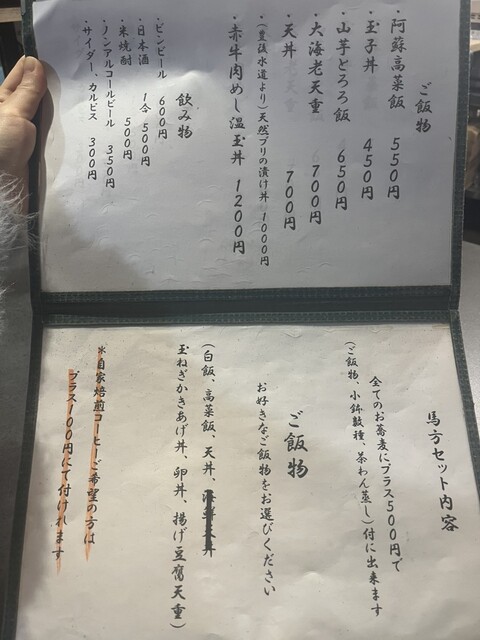 ご飯物
・阿蘇高菜飯 550円
・玉子丼 450円
・山芋とろろ飯 650円
・大海老天重 700円
・天丼 700円
・(豊後水道より)天然ブリの漬け丼 1000円
・赤牛肉めし温玉丼 1200円
飲み物
・ビンビール 600円
・日本酒 1合 500円
・米焼酎 500円
・ノンアルコールビール 350円
・サイダー、カルピス 300円
馬方セット内容
全てのお蕎麦にプラス500円で
(ご飯物、小鉢数種、茶わん蒸し)付に出来ます
ご飯物
お好きなご飯物をお選びください
(白飯、高菜飯、天丼、
玉ねぎかきあげ丼、卵丼、揚げ豆腐天重)
*自家焙煎コーヒーご希望の方は
プラス100円にて付けれます